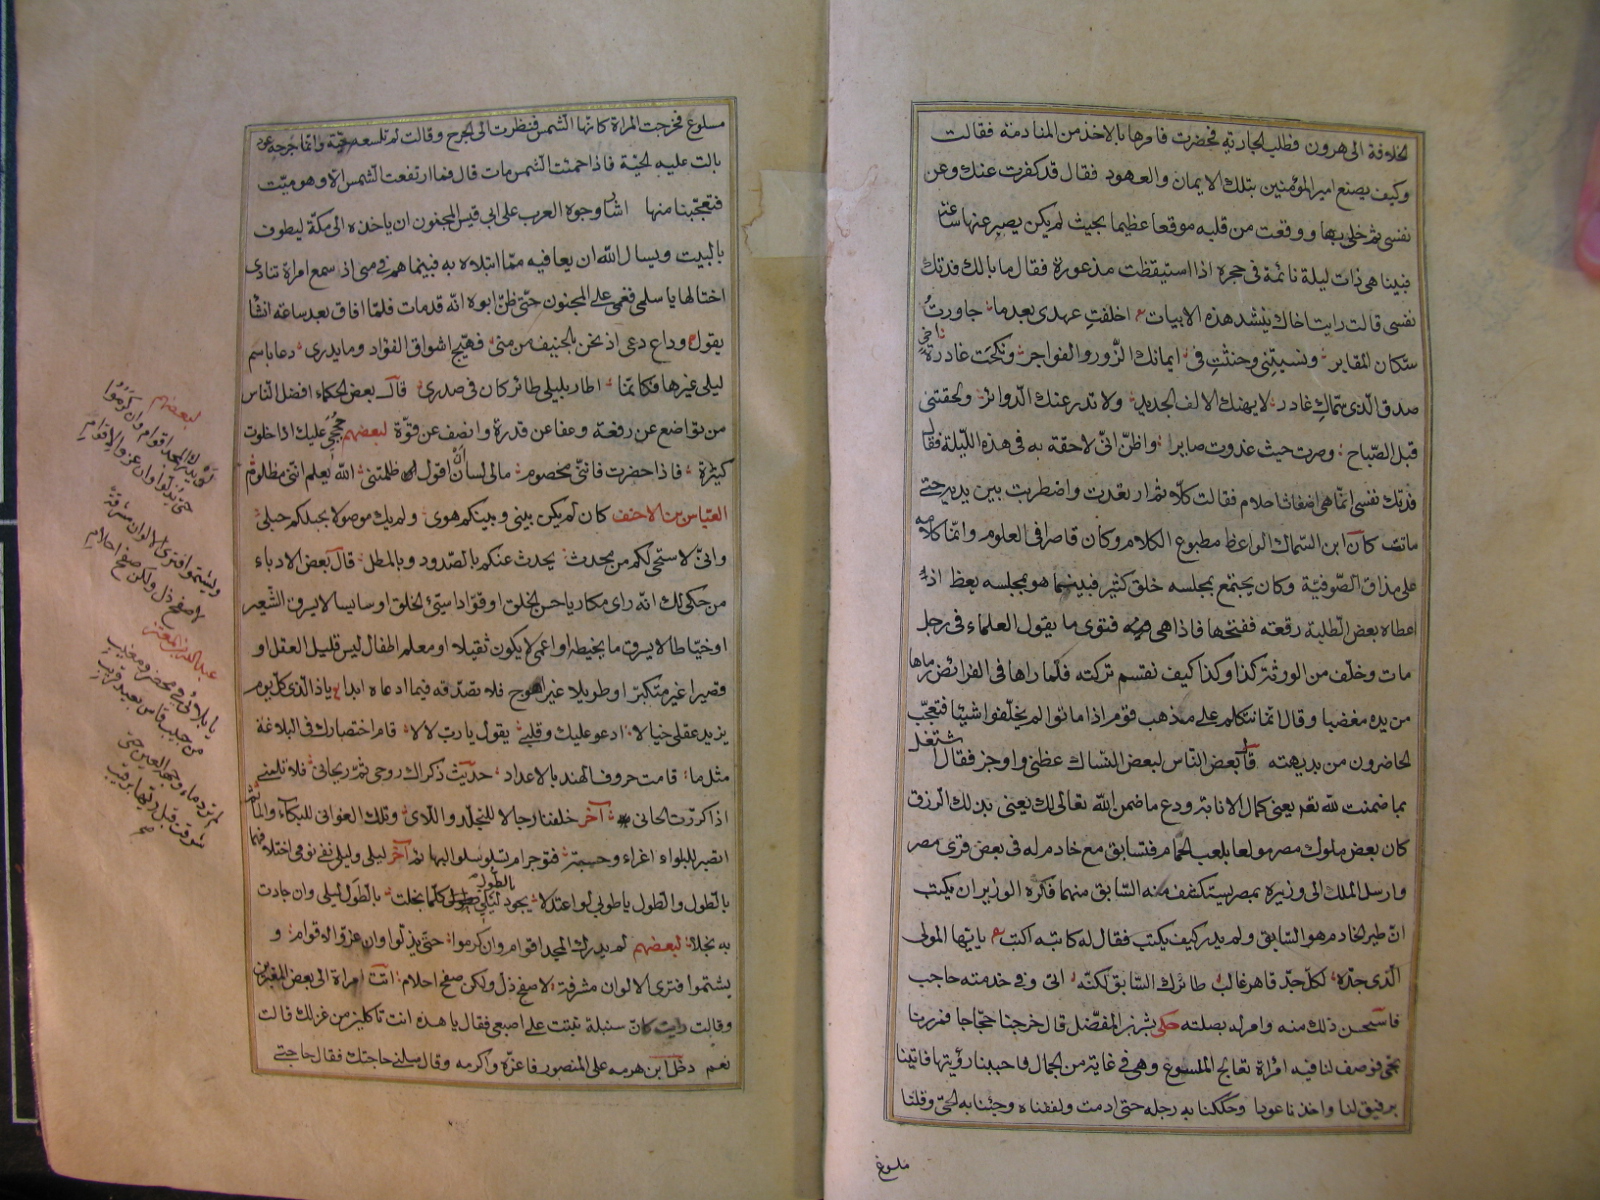 الخلافة الى هرون فطلب الجارية فحضرت فامرها بالاخذ من المنادمة فقالت
وكيف يصنع امير المؤمنين بتلك الايمان والعهود فقال قد كفرت عنك وعن
نفسى ثم خلى بها ووقعت من قلبه موقعا عظيما بحيث لم يكن يصبر عنها ساعة
فبينا هى ذات ليلة نائمة فى حجره اذا استيقظت مذعورة فقال ما بالك فدتك
نفسى قالت رايت اخاك ينشد هذه الابيات اخلفت عهدى بعدما جاورت
سكان المقابر ونسيتنى وحنثت فى ايمانك الزور والفواجر ونكحت غادرة اخى
صدق الذى سماك غادر لا يهنك الالف الجديد ولا تدر عنك الدوائر ولحقتنى
قبل الصباح وصرت حيث غدوت صابرا واظن انى لاحقة به فى هذه الليلة فقال
فدتك نفسى انما هى اضغاث احلام فقالت كلا ثم ارتعدت واضطربت بين يديه حتى
ماتت كان ابن السماك الواعظ مطبوع الكلام وكان قاصرا فى العلوم وانما كلامه
على مذاق الصوفية وكان يجتمع بمجلسه خلق كثير فبينما هو بمجلسه يعظ اذ
اعطاه بعض الطلبة رقعته ففتحها فاذا هى فتوى ما يقول العلماء فى رجل
مات وخلف من الورثة كذا وكذا كيف نقسم تركته فلما راها فى الفرائض رماها
من يده مغضبا وقال انما نتكلم على مذهب قوم اذا ماتوا لم يخلفوا شيئا فتعجب
الحاضرون من بديهته قال بعض الناس لبعض النساك عظنى واوجز فقال اشتغل
بما ضمنت لله تعالى يعنى كمال الانابة ودع ما ضمن الله تعالى لك يعنى بذلك الرزق
كان بعض ملوك مصر مولعا بلعب الحمام فتسابق مع خادم له فى بعض قرى مصر
وارسل الملك الى وزيره بمصر يستكشف منه السابق منهما فكره الوزير ان يكتب
ان طير الخادم هو السابق ولم يدر كيف يكتب فقال له كاتبه اكتب يا ايها المولى
الذى جده لكل جد قاهر غالب طائرك السابق لكنه اتى وفى خدمته حاجب
فاستحسن ذلك منه وامر له بصلته حكى بشر بن المفضل قال خرجنا حجاجا فمررنا
بحى فوصف لنا فيه امراة تعالج الملسوع وهى فى غاية من الجمال فاحببنا رؤيتها فاتينا
برفيق لنا واخذنا عودا وحككنا به رجله حتى ادمت ولففناه وجئنا به الحى وقلنا
ملسوع
ملسوع فخرجت المراة كانها الشمس فنظرت الى الجرح وقالت لم تلسعه حية وانما جرحه عود
بالت عليه الحية فاذا حميت الشمس مات قال فما ارتفعت الشمس الا وهو ميت
فتعجبنا منها اشار وجوه العرب على ابى قيس المجنون ان ياخذه الى مكة ليطوف
بالبيت ويسال الله ان يعافيه مما ابتلاه به فبينما هم فى منى اذ سمع امراة تنادى
اختا لها يا سلمى فغمى على المجنون حتى ظن ابوه انه قد مات فلما افاق بعد ساعة انشا
يقول وداع دعى اذ نحن بالخيف من منى فهيج اشواق الفؤاد وما يدرى دعا باسم
ليلى غيرها فكانما اطار بليلى طائر كان فى صدرى قال بعض الحكماء افضل الناس
من تواضع عن رفعة وعفا عن قدرة وانصف عن قوة لبعضهم حججى عليك اذا خلوت
كثيرة فاذا حضرت فاننى مخصوم مالى لسان ان اقول ظلمتنى الله يعلم اننى مظلوم
العباس بن الاحنف كان لم يكن بينى وبينكم هوى ولم يك موصولا بحبلكم حبلى
وانى لاستحى لكم من محدث يحدث عنكم بالصدود وبالمطل قال بعض الادباء
من حكى لك انه راى مكاريا حسن الخلق او قوادا سيئ الخلق او سايسا لا يسرق الشعير
او خياطا لا يسرق ما يخيطه او اعمى لا يكون ثقيلا او معلم اطفال ليس قليل العقل او
قصيرا غير متكبر او طويلا غير اهوج فلا تصدقه فيما ادعاه ابدا يا ذا الذى كل يوم
يزيد عقلى خبالا ادعو عليك وقلبى يقول يا رب لا لا قام اختصارك فى البلاغة
مثل ما قامت حروف الهند بالاعداد حديث ذكراك روحى ثم ريحانى فلا تلمنى
اذا كررت الحانى آخر خلقنا رجالا للتجلد والاسى وتلك الغوانى للبكاء والماتم
اتصبر للبلواء اغراء وحسبة فتوجر ام تسلو سلو البهائم آخر ليلى وليلى نفى نومى اختلافهما
بالطول والطول يا طوبى لو اعتدلا يجود بالطول ليلى كلما بخلت بالطول ليلى وان جادت
به بخلا لبعضهم لم يدرك المجد اقوام وان كرموا حتى يذلوا وان عزوا لاقوام و
يشتموا فترى الالوان مشرقة لا صفح ذل ولكن صفح احلام اتت امراة الى بعض المعبرين
وقالت رايت كان سنبلة نبتت على اصبعى فقال يا هذه انت تاكلين من غزلك قالت
نعم دخل ابن هرمه على المنصور فاعزه واكرمه وقال سلنى حاجتك فقال حاجتى
لبعضهم
لن يدرك المجد اقوام وان كرموا
حتى يذلوا وان عزوا لاقوام
ويشتموا فترى الالوان مشرقة
لا صفح ذل ولكن صفح احلام
عبد الله بن المعتز